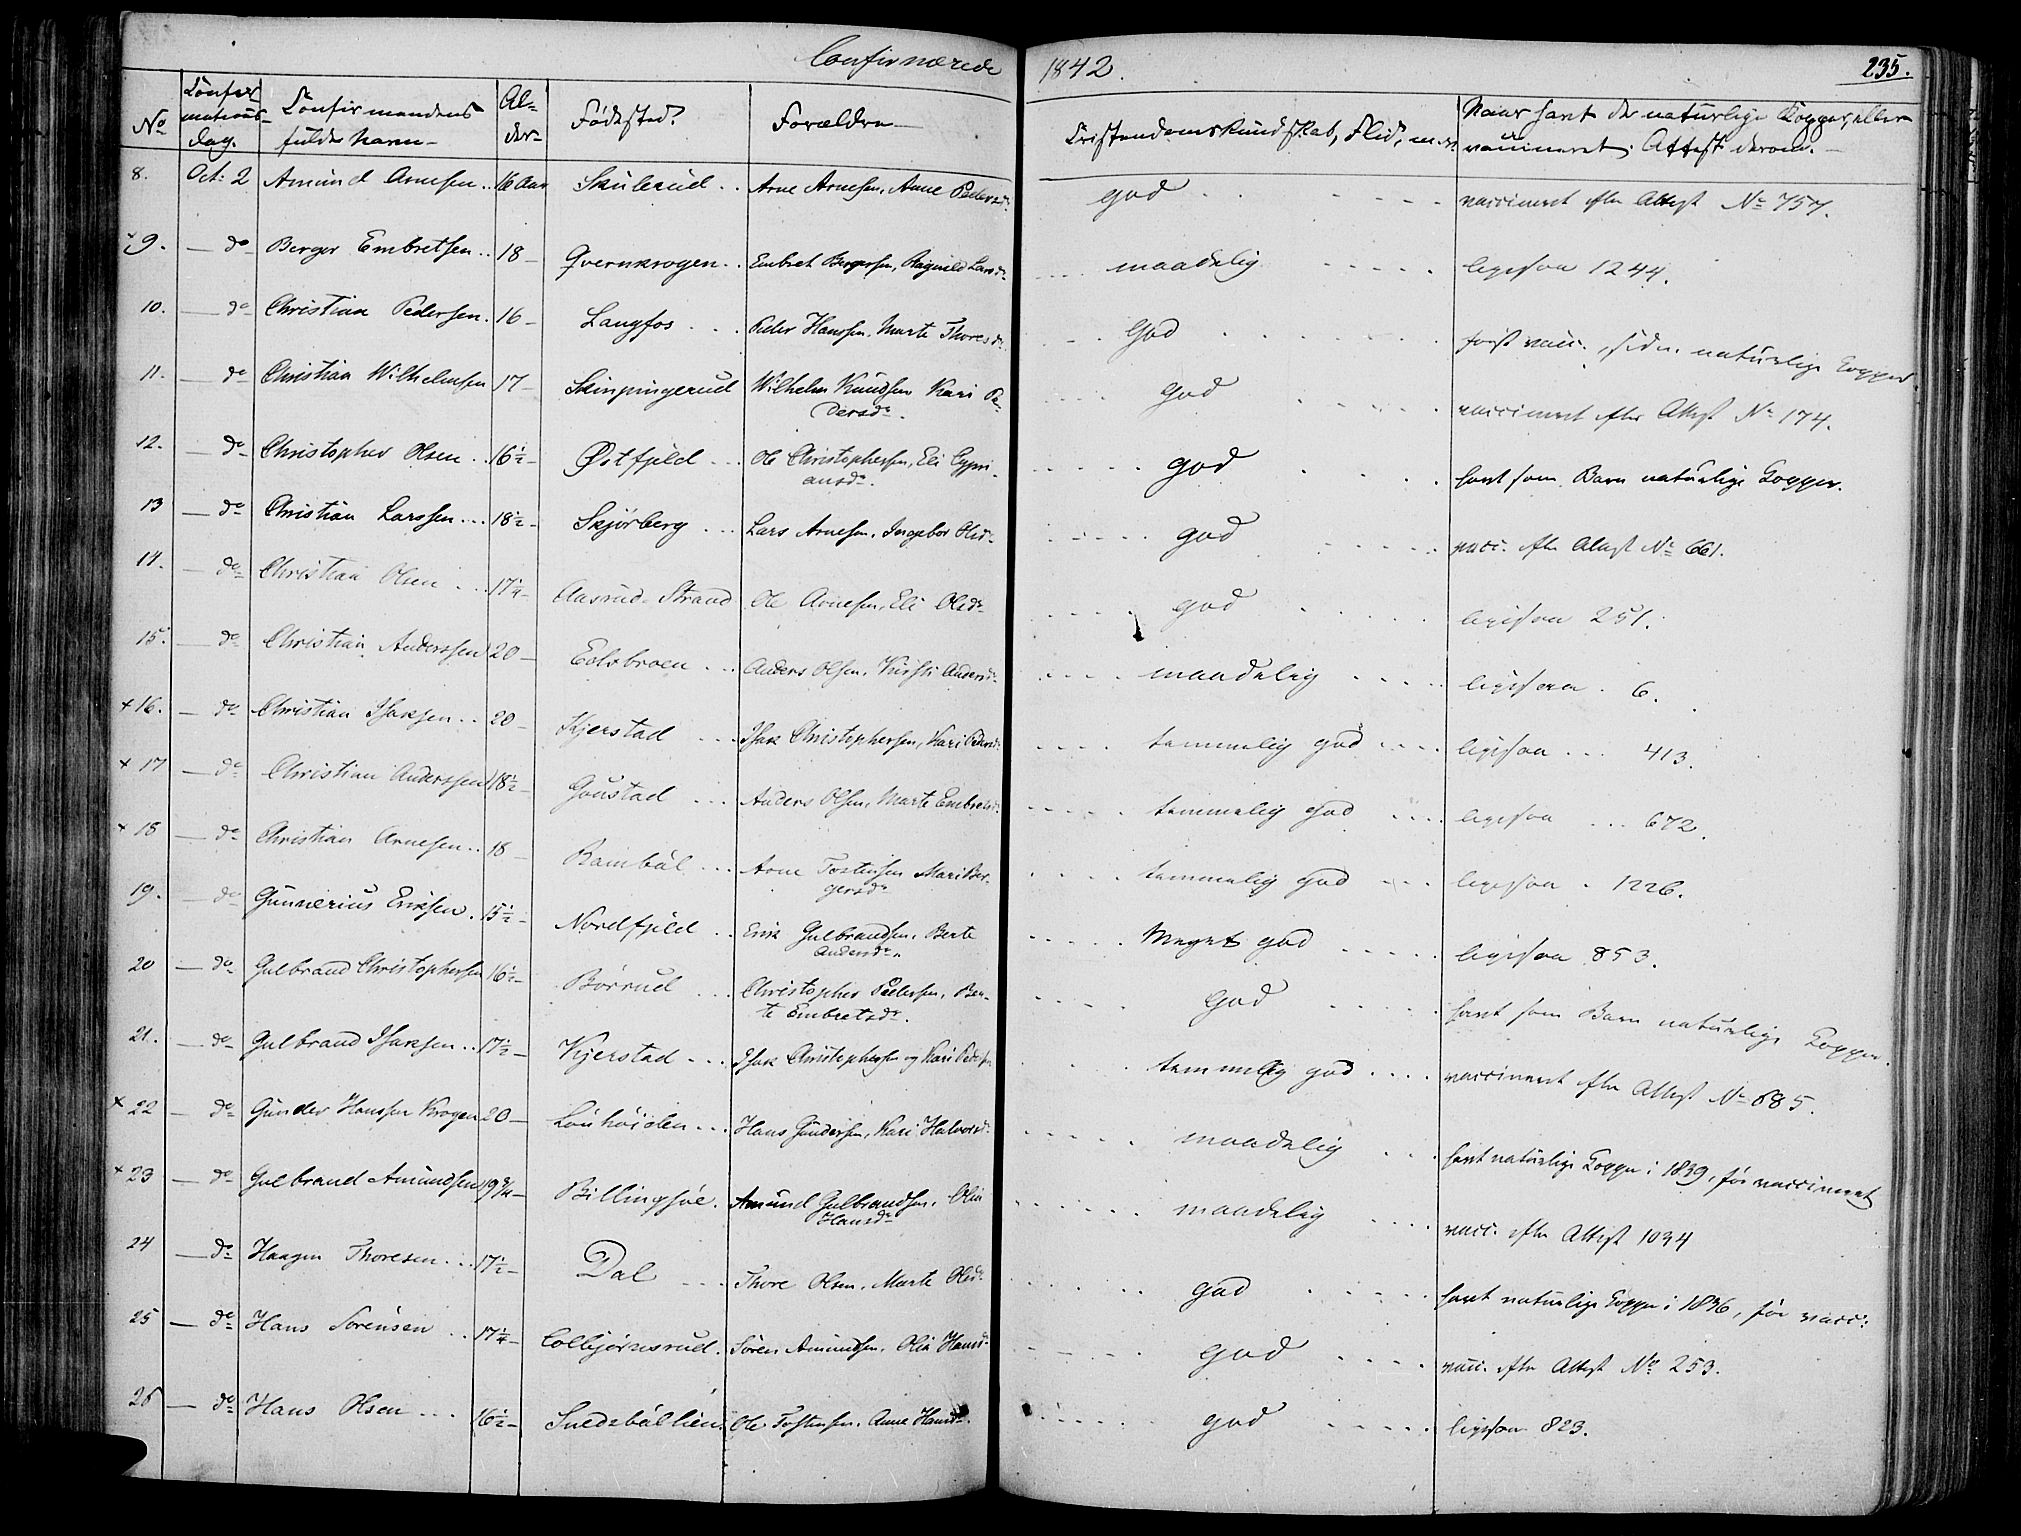 Confirmerede 1842. 235.
No Confirmations-dag. Confirmandens fulde Navn Alder Fødested? Forældre Cristendomskundskab, Flid, m.m. Naar havt de naturlige Kopper, eller vaccineret. Attest derom.
8. Oct: 2 Amund Arnesen .. 16 Aar Skulerud .. Arne Arnesen, Anne Pedersdr god vaccineret efter Attest No 757.
9. — do Berger Embretsen .. 18 — Qvernkrogen . Embret Bergersen, Ragnild Larsdr maadelig ligesaa 1244.
10. — do Christian Pedersen. 16 — Langfos ... Peder Hanssen, Marte Thoresdr God først vacc., siden naturlige Kopper.
11. — do Christian Wilhelmsen 17 — Skinpungerud Wilhelm Knudsen Kari Pe-
dersdr. god vaccineret efter Attest No 174.
12. — do Christopher Olsen .. 16½ — Østfjeld ... Ole Christophersen, Eli Cypri-
ansdr. god havt som Barn naturlige Kopper.
13 — do Christian Larssen ... 18½ — Skjørberg ... Lars Arnesen, Ingebor Olsdr god vacc. efter Attest No 661.
14. — do Christian Olsen ... 17¼ — Aasrud-Strand Ole Arnesen, Eli Olsdr god ligesaa 251.
15. — do Christian Anderssen 20 — Eolsbroen ... Anders Olsen, Kirsti Andersdr maadelig ligesaa . 6.
+ 16. — do Christian Isaksen .. 20 — Kjerstad ... Isak Christophersen, Kari Pedersdr temmelig god ligesaa ... 413.
+ 17 — do Christian Anderssen 18½ — Goustad ... Anders Olsen, Marte Embretsdr temmelig god ligesaa ... 672.
+ 18 — do Christian Arnesen .. 18 — Rambøl ... Arne Tostensen Mari Ber-
gersdr temmelig god ligesaa . 1226.
19. — do Gunnerius Eriksen. 15½ — Nordfjeld .. Erik Gulbrandsen, Berte
Andersdr. Meget god ligesaa 853.
20 — do Gulbrand Christophersen 16½ — Børrud ... Christopher Pedersen, Ber-
te Embretsdr. God havt som Barn naturlige Kopper.
21. — do Gulbrand Isaksen .. 17½ — Kjerstad ... Isak Christophersen og Kari Pedersdr temmelig god vaccineret efter Attest No 685.
+ 22 — do Gunder Hanssen Krogen 20 — Løuhøiden ... Hans Gundersen, Kari Halvorsdr maadelig havt naturlige Kopper i 1839, før vaccineret
+ 23 — do Gulbrand Amundsen 19¾ — Billingsøe . Amund Gulbrandsen, Olia
Hansdr maadelig vacc. efter Attest 1034
24 — do Haagen Thoresen ... 17½ — Dal ... Thore Olsen, Marte Olsdr god havt naturlige Kopper i 1836, før vacc:
25 — do Hans Sørensen .. 17¼ — Colbjørnsrud. Søren Amundsen, Olia Hansdr god vacc. efter Attest No 253.
26 — do Hans Olsen ... 16½ — Snedsbøllien. Ole Tostensen. Anne Hansdr. god ligesaa 823.